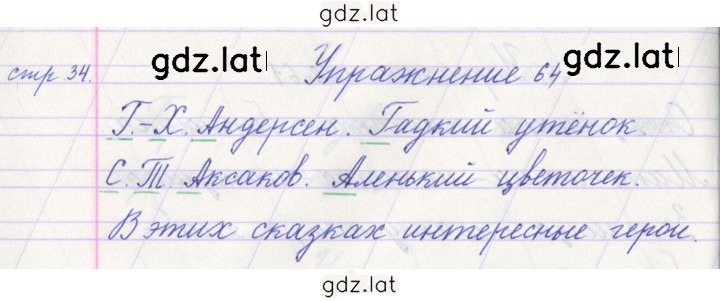 gdz.lat
стр. 34.
gdz.lat
gdz.lat
Упражнение 64
Г.-Х. Андерсен. Гадкий утёнок.
С. Т. Аксаков. Аленький цветочек.
В этих сказках интересные герои.
gdz.lat